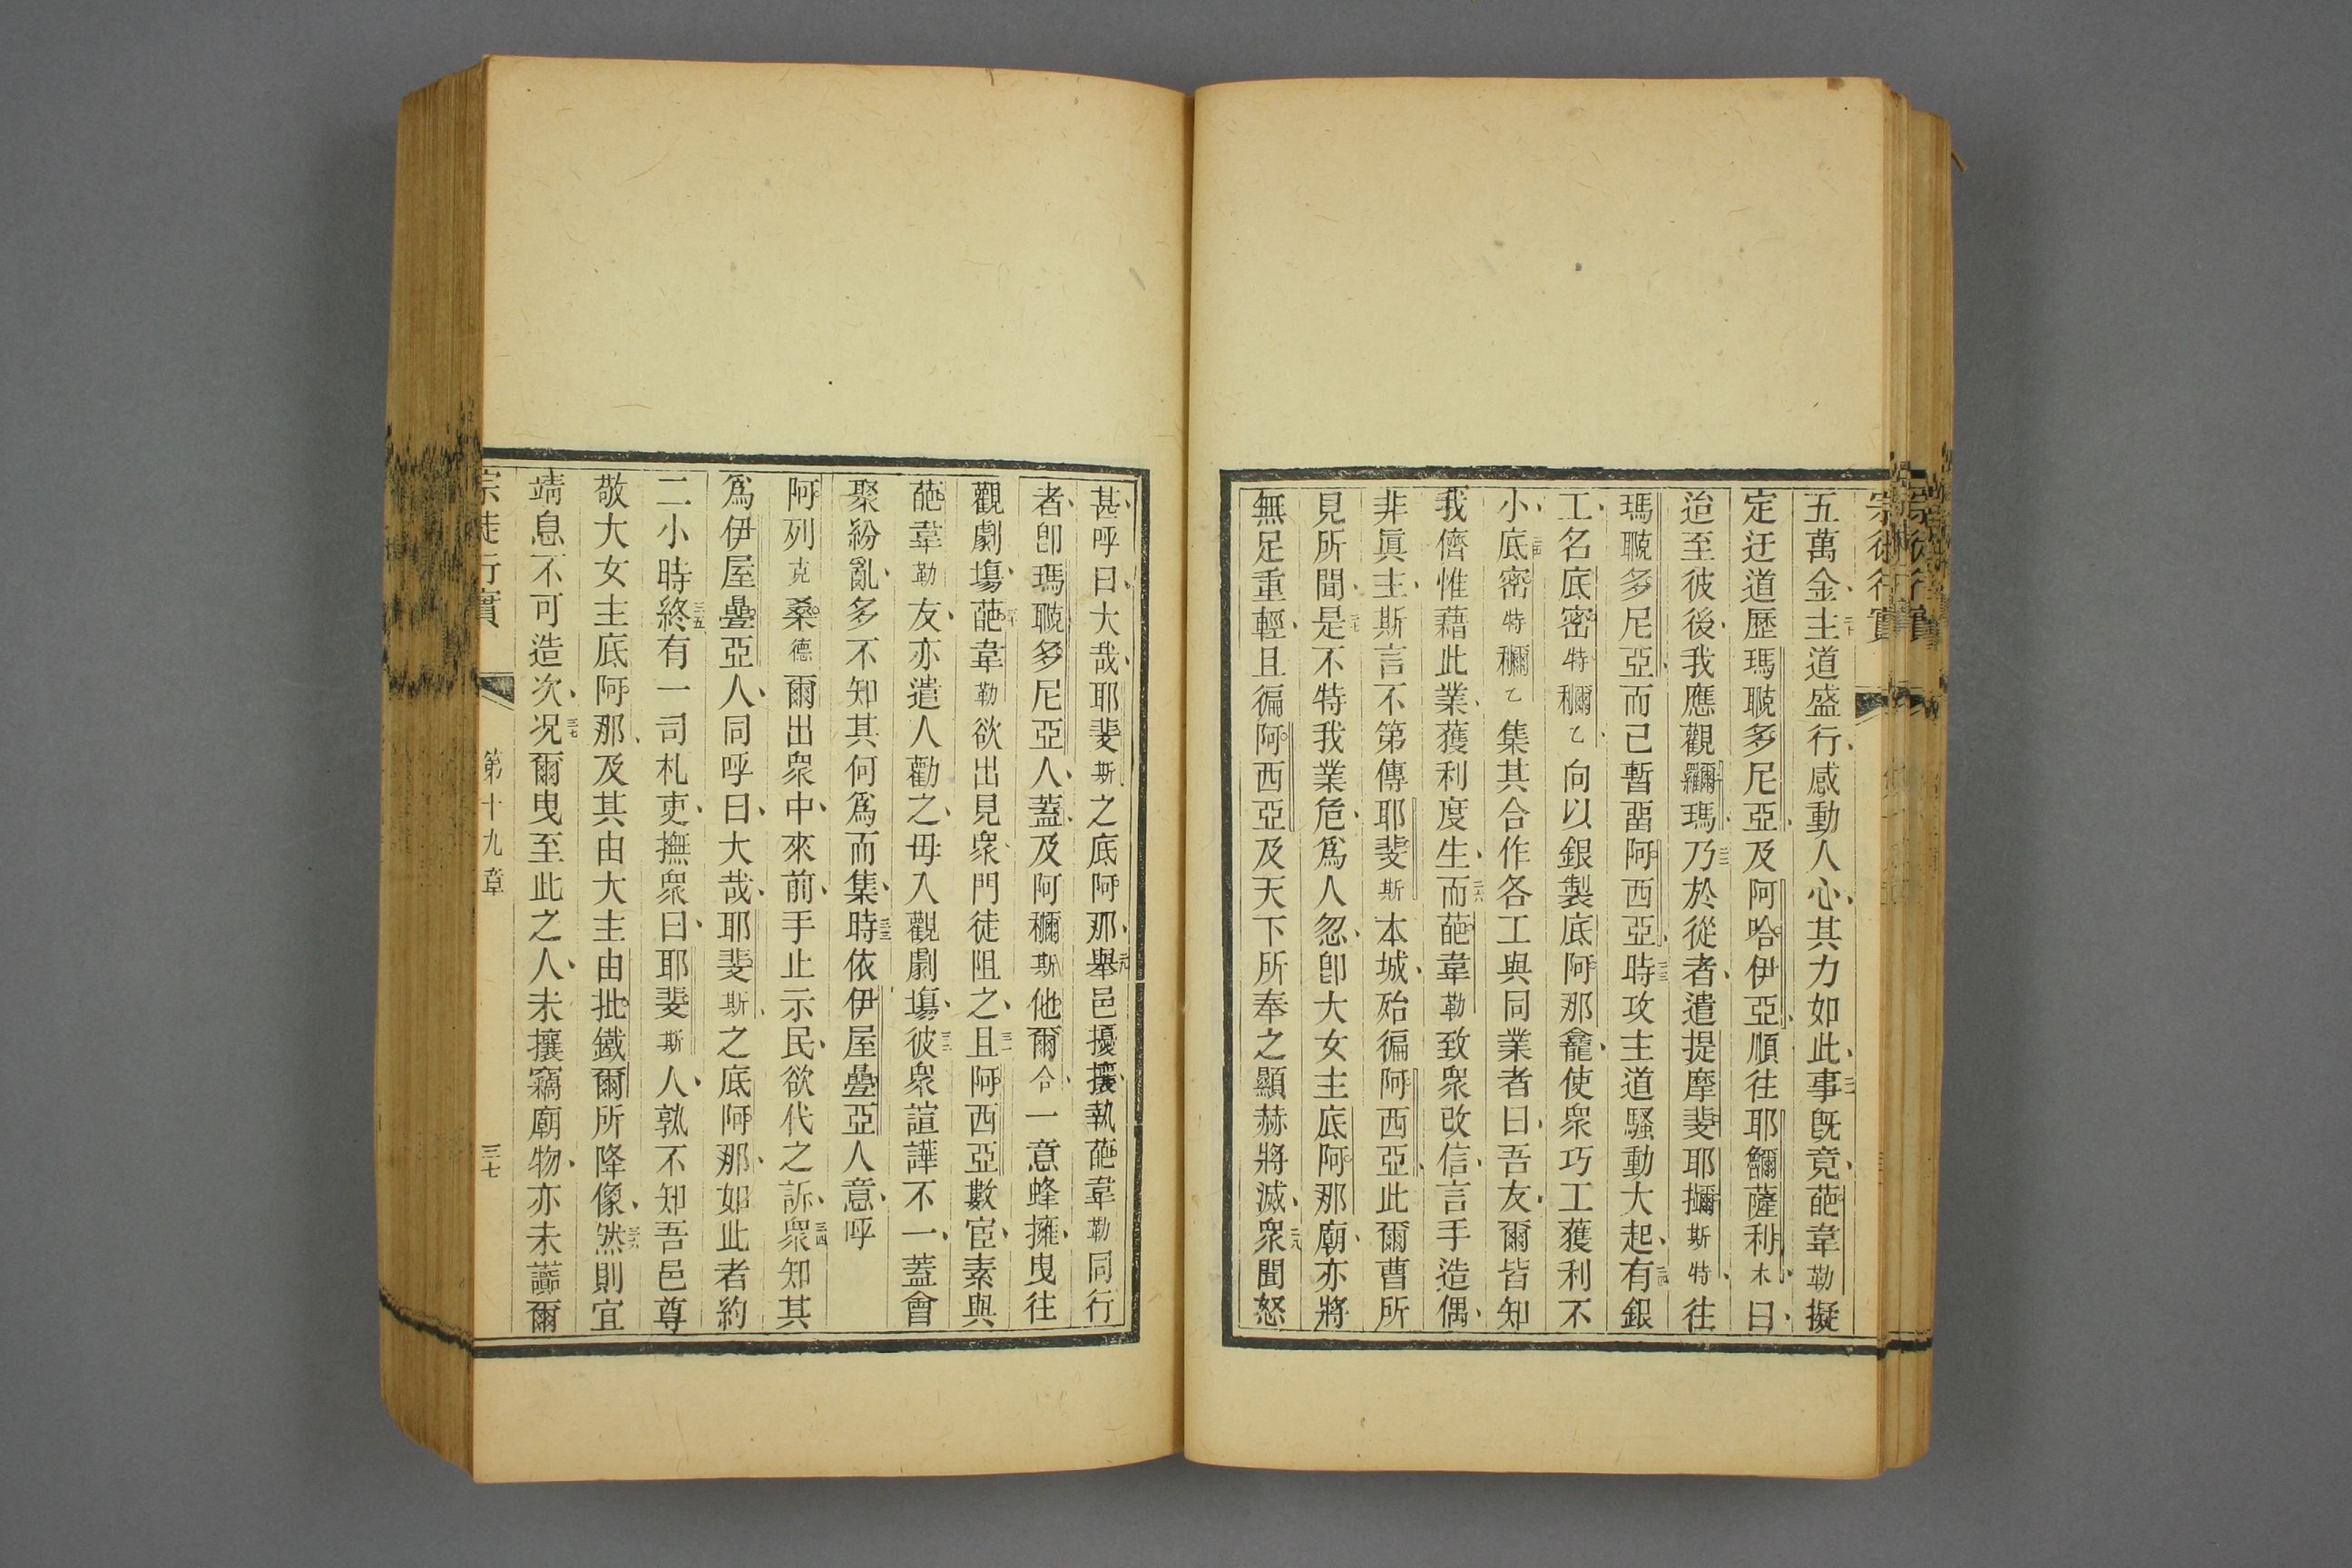 宗徒行實
五萬金、主二十道盛行、感動人心、其力如此、事二一旣竟、葩韋勒擬
定迂道歷瑪聭多尼亞、及阿哈伊亞、順往耶䥯薩利木、曰、
迨至彼後、我應觀瑪、乃二二於從者、遣提摩斐耶斯特、往
瑪聭多尼亞、而己暫畱阿西亞、時二三攻主道騷動大起、有二四銀
工、名底密特乙、向以銀製底阿那龕、使衆巧工獲利不
小、底二五密特乙集其合作各工與同業者曰、吾友、爾皆知
我儕惟藉此業、獲利度生、而二六葩韋勒致衆改信、言手造偶、
非眞主、斯言不第傳耶斐斯本城、殆徧阿西亞、此爾曹所
見所聞、是二七不特我業危、爲人忽、卽大女主底阿那廟、亦將
無足重輕、且徧阿西亞及天下所奉之顯赫將滅、衆二八聞怒
甚、呼曰、大哉、耶斐斯之底阿那、舉二九邑擾攘、執葩韋勒同行
者、卽瑪聭多尼亞人、蓋、及阿斯他爾合、一意蜂擁、曳往
觀劇塲、葩三十韋勒欲出見衆、門徒阻之、且三一阿西亞數宦、素與
葩韋勒友、亦遣人勸之、毋入觀劇塲、彼三二衆諠譁不一、蓋會
聚紛亂、多不知其何爲而集、時三三依伊屋疊亞人意、呼
阿列克桑德爾出衆中、來前、手止示民、欲代之訴、衆三四知其
爲伊屋疊亞人、同呼曰、大哉、耶斐斯、之底阿那、如此者約
二小時、終三五有一司札吏、撫衆曰、耶斐斯人、孰不知吾邑尊
敬大女主底阿那、及其由大主由批鐵爾所降像、然三六則宜
靖息、不可造次、况三七爾曳至此之人、未攘竊廟物、亦未讟爾
宗徒行實 第十九章 三七